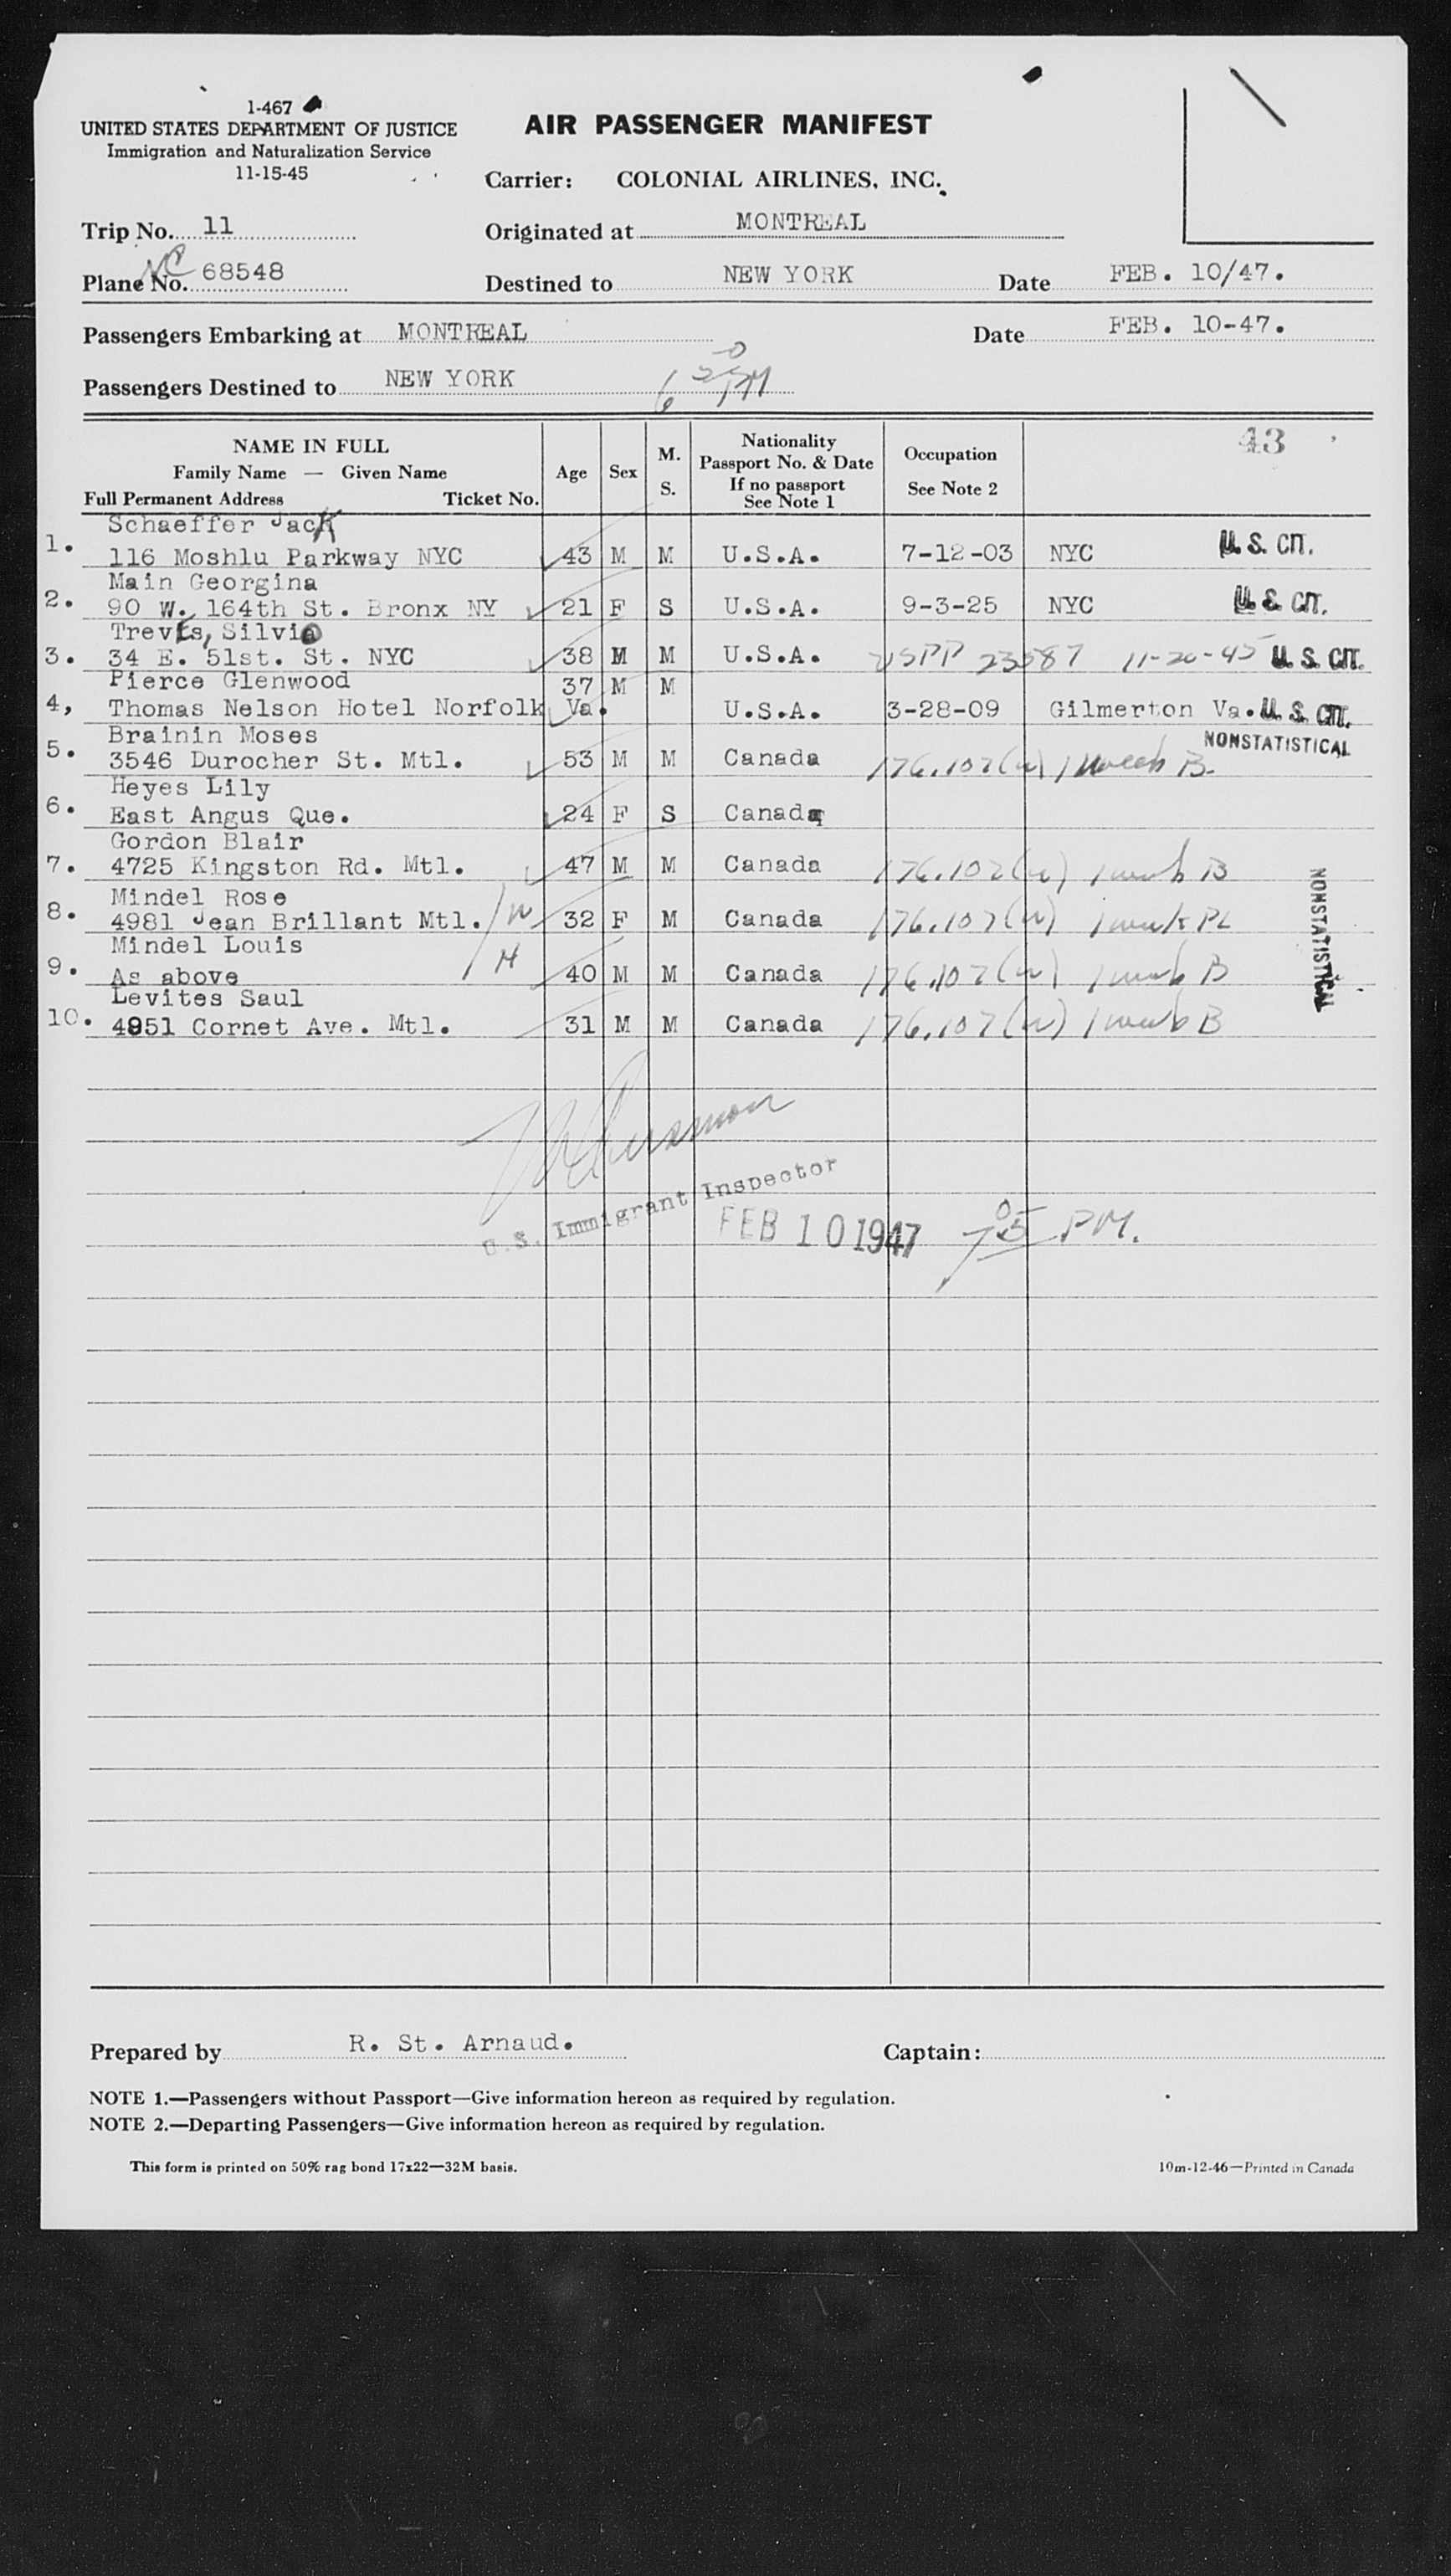 1-467
UNITED STATES DEPARTMENT OF JUSTICE
Immigration and Naturalization Service
11-15-45
AIR PASSENGER MANIFEST
Carrier: COLONIAL AIRLINES, INC.
Trip No. 11
Originated at MONTREAL
NC
Plane No. 68548
Destined to NEW YORK
Date FEB. 10/47.
Passengers Embarking at MONTREAL
Date FEB. 10-47.
Passengers Destined to NEW YORK
43
NAME IN FULL
Family Name — Given Name
Full Permanent Address Ticket No.
Age
Sex
M.
S.
Nationality
Passport No. & Date
If no passport
See Note 1
Occupation
See Note 2
Schaeffer Jack
1. 116 Moshlu Parkway NYC 43 M M U.S.A. 7-12-03 NYC U.S. CIT.
Main Georgina
2. 90 W. 164th St. Bronx NY 21 F S U.S.A. 9-3-25 NYC U.S. CIT.
Treves, Silvio
3. 34 E. 51st. St. NYC 38 M M U.S.A. USPP 23587 11-20-45 U.S. CIT.
Pierce Glenwood 37 M M
4, Thomas Nelson Hotel Norfolk Va. U.S.A. 3-28-09 Gilmerton Va. U.S. CIT.
Brainin Moses NONSTATISTICAL
5. 3546 Durocher St. Mtl. 53 M M Canada 176.107(a) 1 week B.
Heyes Lily
6. East Angus Que. 24 F S Canada
Gordon Blair
7. 4725 Kingston Rd. Mtl. 47 M M Canada 176.107(a) 1 week B
Mindel Rose
8. 4981 Jean Brillant Mtl. W 32 F M Canada 176.107(a) 1 week PL
Mindel Louis
9. As above H 40 M M Canada 176.107(a) 1 week B
Levites Saul
10. 4851 Cornet Ave. Mtl. 31 M M Canada 176.107(a) 1 week B
NONSTATISTICAL
U.S. Immigrant Inspector
FEB 10 1947 7 05 PM.
Prepared by R. St. Arnaud.
Captain:
NOTE 1.—Passengers without Passport—Give information hereon as required by regulation.
NOTE 2.—Departing Passengers—Give information hereon as required by regulation.
This form is printed on 50% rag bond 17x22—32M basis.
10m-12-46—Printed in Canada